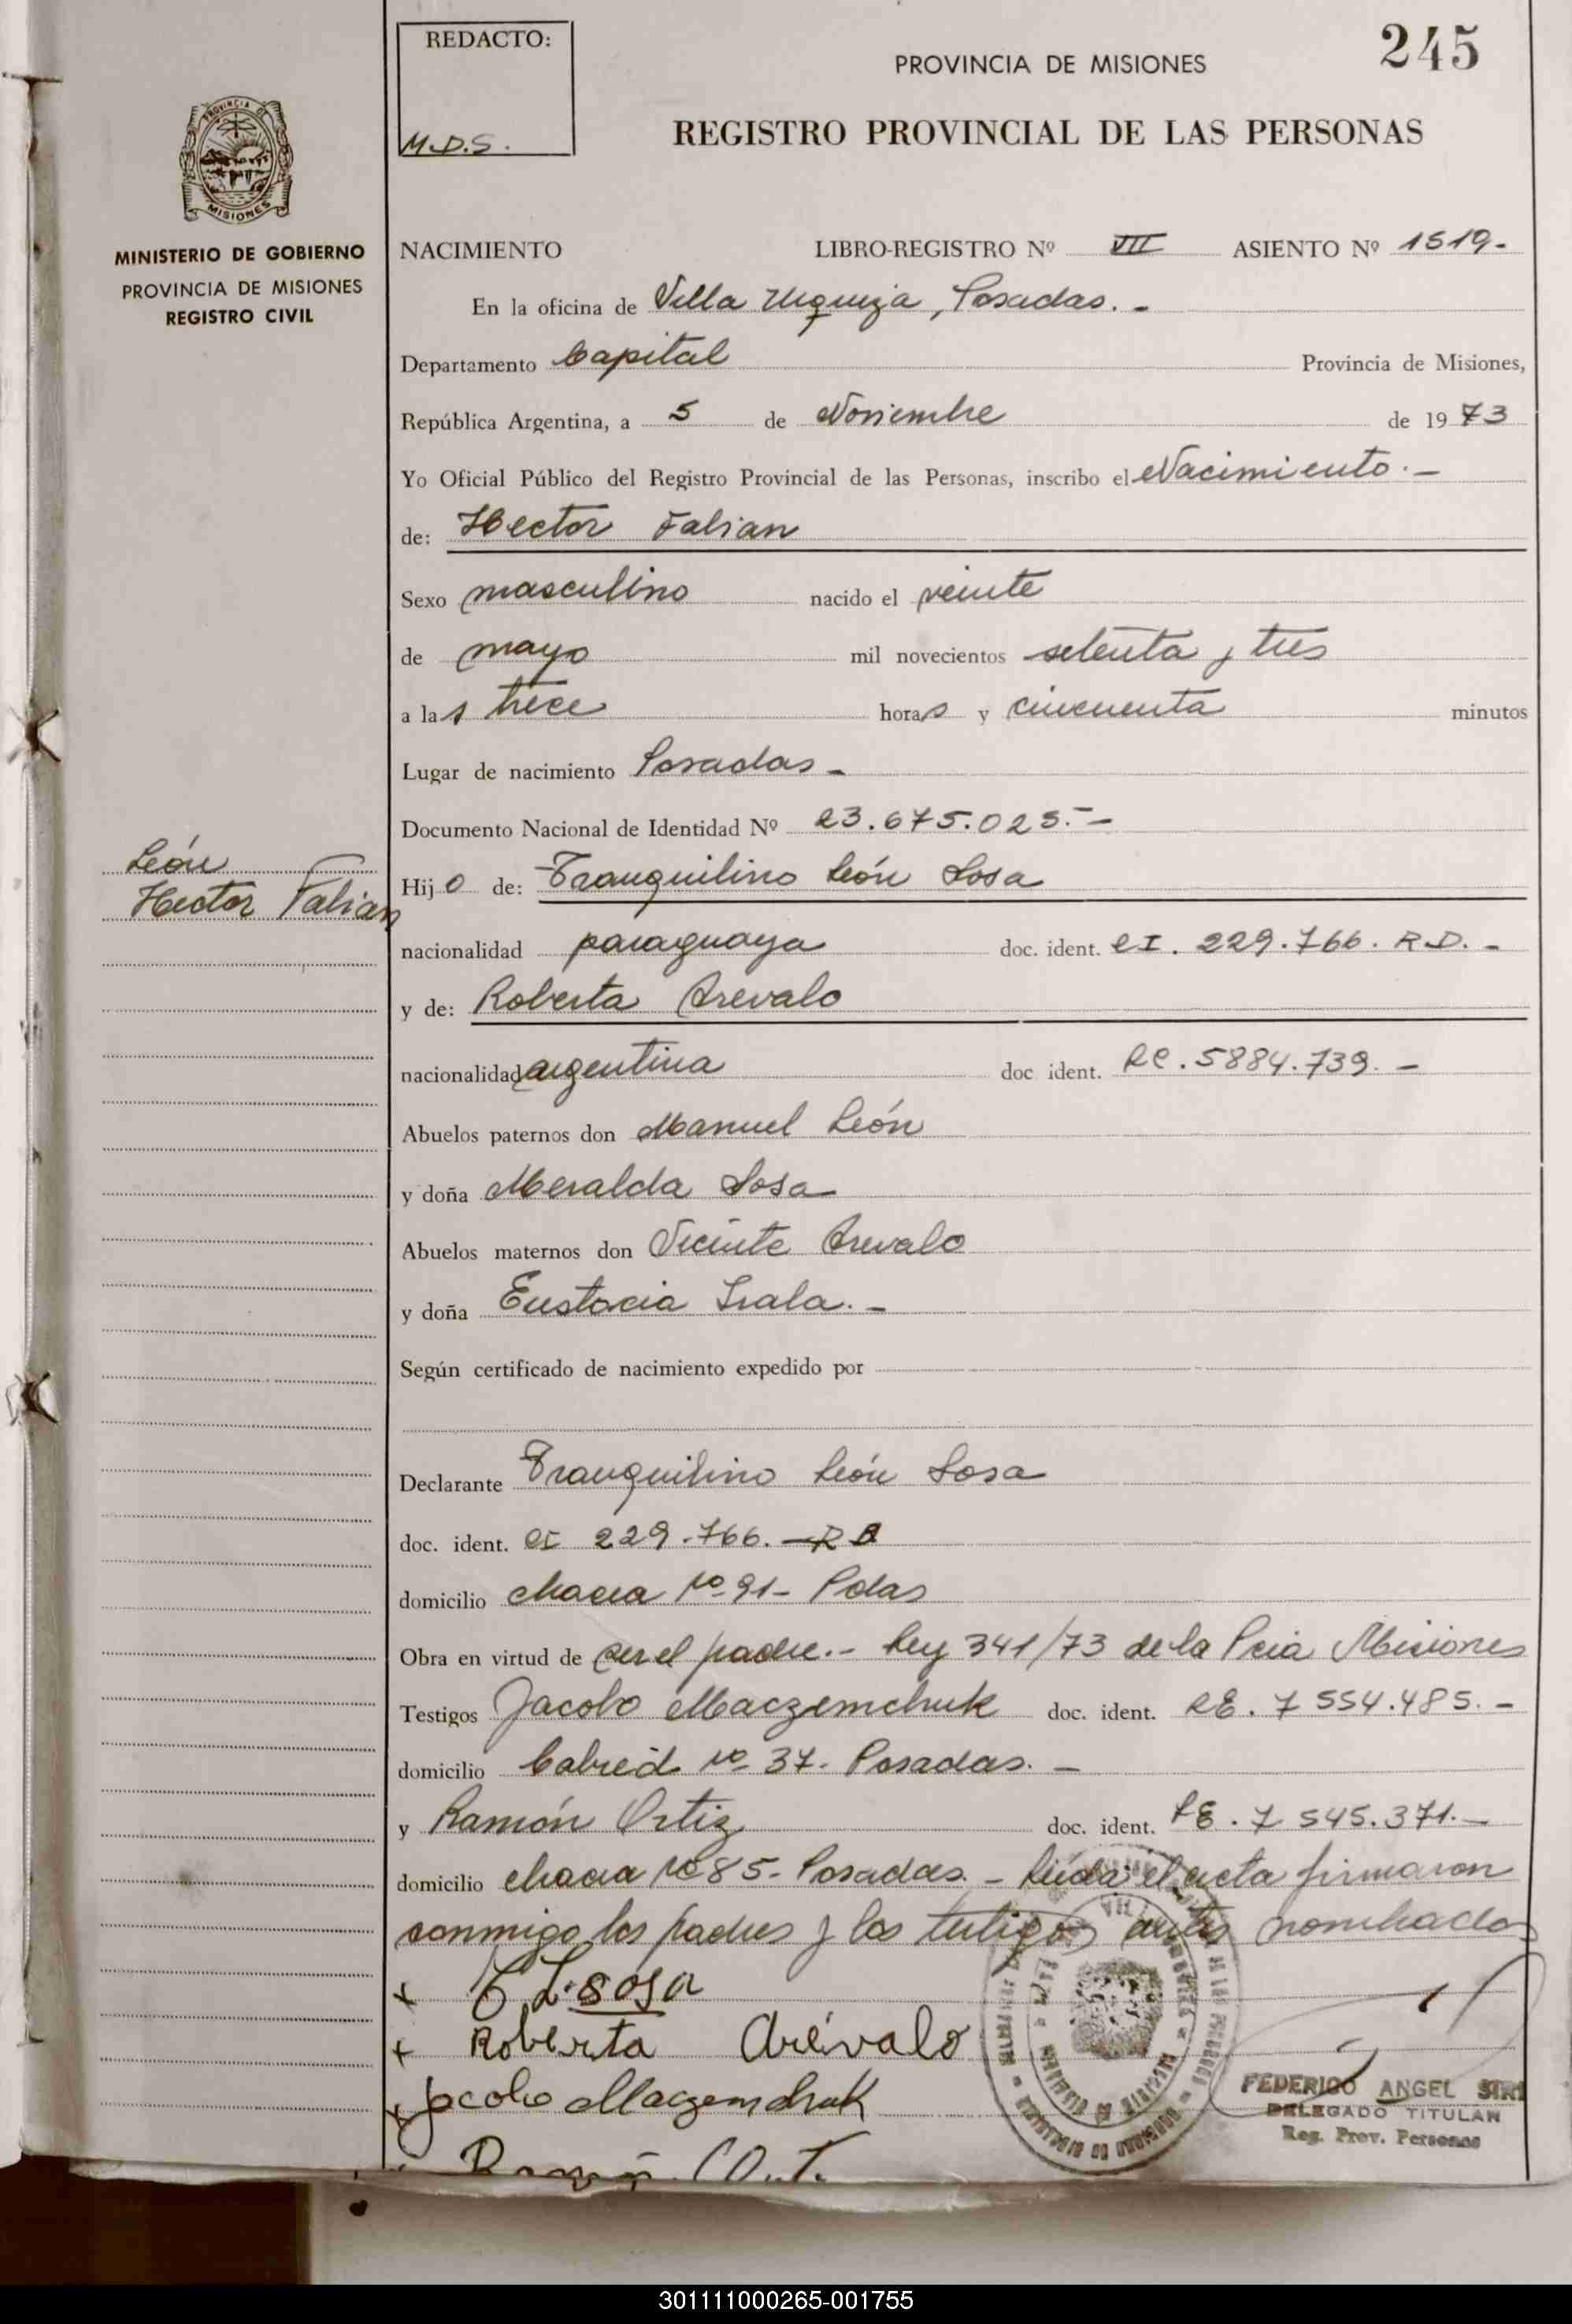 REDACTO:
M.D.S.
PROVINCIA DE MISIONES
245
REGISTRO PROVINCIAL DE LAS PERSONAS
PROVINCIA DE
MISIONES
MINISTERIO DE GOBIERNO
PROVINCIA DE MISIONES
REGISTRO CIVIL
NACIMIENTO LIBRO-REGISTRO Nº VII ASIENTO Nº 1519.-
En la oficina de Villa Urquiza, Posadas.-
Departamento Capital Provincia de Misiones,
República Argentina, a 5 de Noviembre de 1973
Yo Oficial Público del Registro Provincial de las Personas, inscribo el Nacimiento.-
de: Hector Fabian
Sexo masculino nacido el veinte
de mayo mil novecientos setenta y tres
a las trece horas y cincuenta minutos
Lugar de nacimiento Posadas-
Documento Nacional de Identidad Nº 23.675.025.-
León
Hector Fabian
Hijo de: Tranquilino León Sosa
nacionalidad paraguaya doc. ident. CI. 229.766. R.D.-
y de: Roberta Arevalo
nacionalidad argentina doc. ident. LC. 5884.739.-
Abuelos paternos don Manuel León
y doña Meralda Sosa
Abuelos maternos don Vicente Arevalo
y doña Eustacia Irala.-
Según certificado de nacimiento expedido por
Declarante Tranquilino León Sosa
doc. ident. CI 229.766.-
domicilio chacra Nº 91- Pdas
Obra en virtud de ser el padre.- Ley 341/73 de la Pcia Misiones
Testigos Jacobo Maczemchuk doc. ident. LE. 7554.485.-
domicilio Cabred Nº 37. Posadas.-
y Ramón Ortiz doc. ident. LE. 7545.371.-
domicilio chacra Nº 85- Posadas.- Leida el acta firmaron
conmigo los padres y los testigos antes nombrados
x T L. SOSA
x Roberta Arévalo
x Jacobo Maczemchuk
FEDERICO ANGEL
DELEGADO TITULAR
Reg. Prov. Personas
301111000265-001755